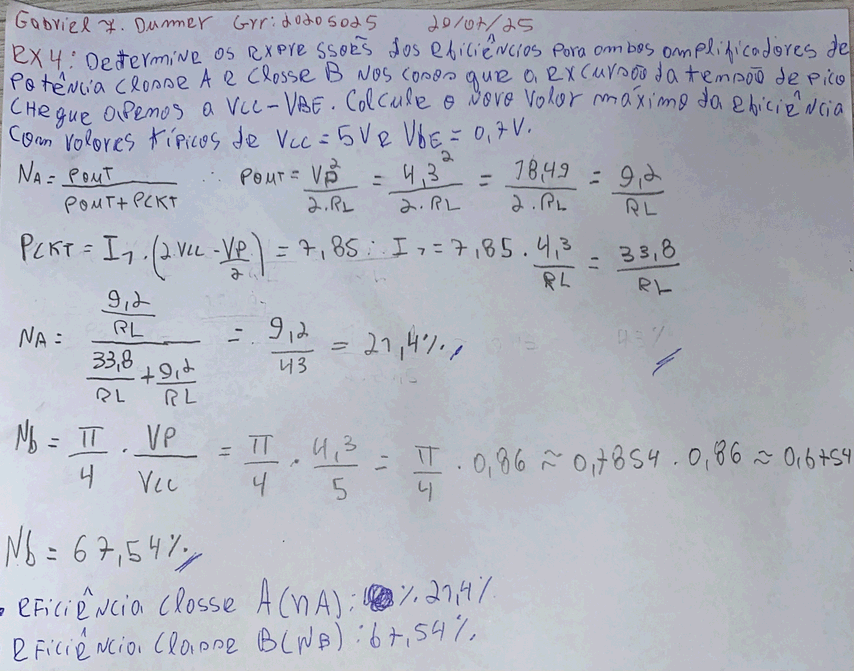 Gabriel Z. Dummer Grr: 20205025 20/07/25
EX 4: Determine os expressões dos eficiências para ambos amplificadores de
potência classe A e classe B nos casos que a excursão da tensão de pico
chegue apenas a VCC-VBE. Calcule o novo valor máximo da eficiência
com valores típicos de VCC = 5V e VbE = 0,7V.
NA = POUT / (POUT + PCKT) ∴ POUT = VP² / (2.RL) = 4,3² / (2.RL) = 18,49 / (2.RL) = 9,2 / RL
PCKT = I1 . (2VCC - VP/2) = 7,85 ∴ I1 = 7,85 . 4,3/RL = 33,8/RL
NA = (9,2/RL) / (33,8/RL + 9,2/RL) = 9,2/43 = 21,4%
Nb = π/4 . VP/VCC = π/4 . 4,3/5 = π/4 . 0,86 ≈ 0,7854 . 0,86 ≈ 0,6754
Nb = 67,54%
• EFiciência Classe A(nA): % 21,4%
EFiciência Classe B(NB): 67,54%